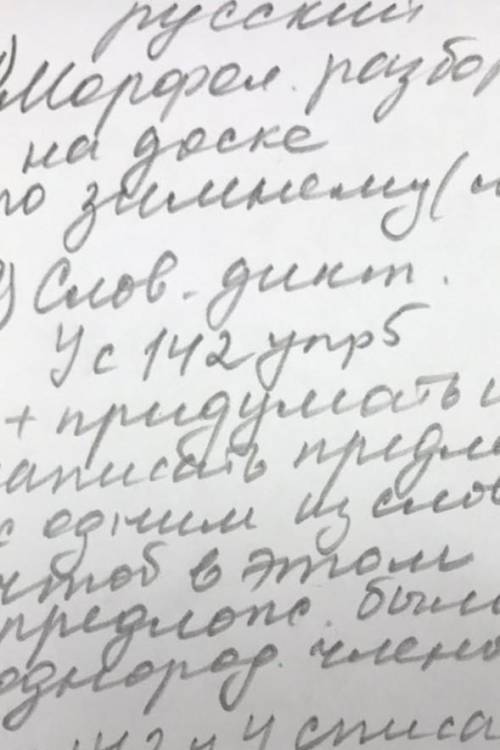 русский
Морфол. разбор
на доске
по зимнему (
2) Слов. дикт.
У с 142 упр 5
+ придумать и
записать предло
с одним из слов
чтоб в этом
предлож. было
однород. члено
142 у 4 списа